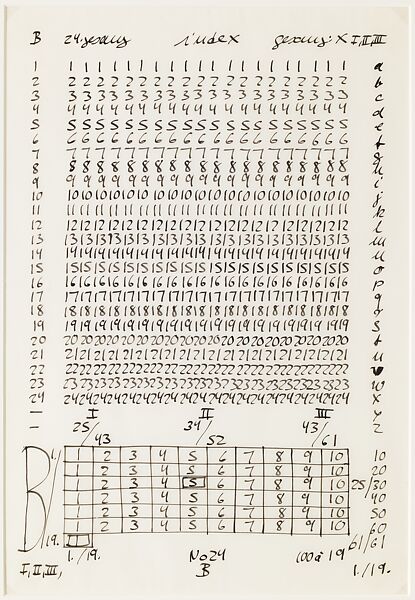 B 24. gesang index gesang: X I, II, III
1 1 1 1 1 1 1 1 1 1 1 1 1 1 1 1 1 1 1 1 1 a
2 2 2 2 2 2 2 2 2 2 2 2 2 2 2 2 2 2 2 2 2 b
3 3 3 3 3 3 3 3 3 3 3 3 3 3 3 3 3 3 3 3 3 c
4 4 4 4 4 4 4 4 4 4 4 4 4 4 4 4 4 4 4 4 4 d
5 5 5 5 5 5 5 5 5 5 5 5 5 5 5 5 5 5 5 5 5 e
6 6 6 6 6 6 6 6 6 6 6 6 6 6 6 6 6 6 6 6 6 f
7 7 7 7 7 7 7 7 7 7 7 7 7 7 7 7 7 7 7 7 7 g
8 8 8 8 8 8 8 8 8 8 8 8 8 8 8 8 8 8 8 8 8 h
9 9 9 9 9 9 9 9 9 9 9 9 9 9 9 9 9 9 9 9 9 i
10 10 10 10 10 10 10 10 10 10 10 10 10 10 10 10 10 10 10 10 10 j
11 11 11 11 11 11 11 11 11 11 11 11 11 11 11 11 11 11 11 11 11 k
12 12 12 12 12 12 12 12 12 12 12 12 12 12 12 12 12 12 12 12 12 l
13 13 13 13 13 13 13 13 13 13 13 13 13 13 13 13 13 13 13 13 13 m
14 14 14 14 14 14 14 14 14 14 14 14 14 14 14 14 14 14 14 14 14 n
15 15 15 15 15 15 15 15 15 15 15 15 15 15 15 15 15 15 15 15 15 o
16 16 16 16 16 16 16 16 16 16 16 16 16 16 16 16 16 16 16 16 16 p
17 17 17 17 17 17 17 17 17 17 17 17 17 17 17 17 17 17 17 17 17 q
18 18 18 18 18 18 18 18 18 18 18 18 18 18 18 18 18 18 18 18 18 r
19 19 19 19 19 19 19 19 19 19 19 19 19 19 19 19 19 19 19 19 19 s
20 20 20 20 20 20 20 20 20 20 20 20 20 20 20 20 20 20 20 20 20 t
21 21 21 21 21 21 21 21 21 21 21 21 21 21 21 21 21 21 21 21 21 u
22 22 22 22 22 22 22 22 22 22 22 22 22 22 22 22 22 22 22 22 22 v
23 23 23 23 23 23 23 23 23 23 23 23 23 23 23 23 23 23 23 23 23 w
24 24 24 24 24 24 24 24 24 24 24 24 24 24 24 24 24 24 24 24 24 x
– I II III y
– 25/43 34/52 43/61 z
B 1./19. 1 2 3 4 5 6 7 8 9 10 10
1 2 3 4 5 6 7 8 9 10 20
1 2 3 4 5 6 7 8 9 10 25/30
1 2 3 4 5 6 7 8 9 10 40
1 2 3 4 5 6 7 8 9 10 50
1 2 3 4 5 6 7 8 9 10 60
61/61
1./19. No 24 100 à 19
I, II, III, B 1./19.